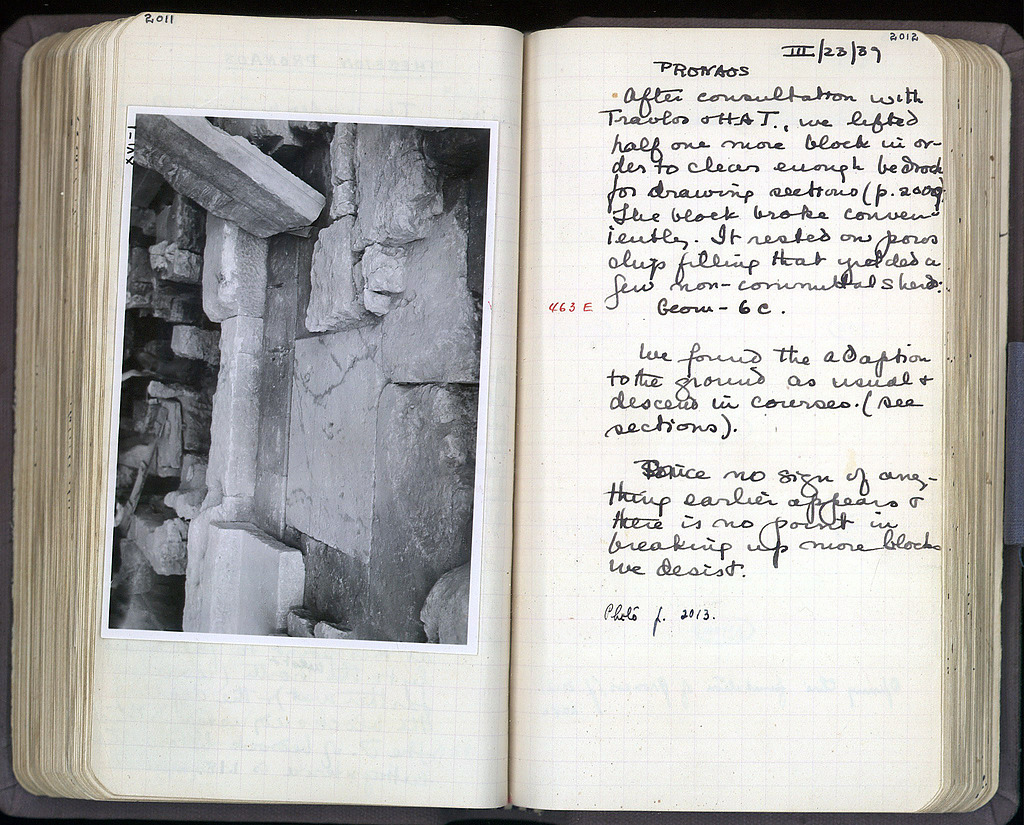 2011
XVI-1
2012
III/23/39
PRONAOS
After consultation with
Travlos & HAT., we lifted
half one more block in or-
der to clear enough bedrock
for drawing sections (p. 2009)
The block broke conven-
iently. It rested on poros
chip filling that yielded a
few non-committal sherds:
463 E Geom - 6 c.
We found the adaption
to the ground as usual &
descend in courses. (see
sections).
Since no sign of any-
thing earlier appears &
there is no point in
breaking up more blocks
we desist.
Photo p. 2013.